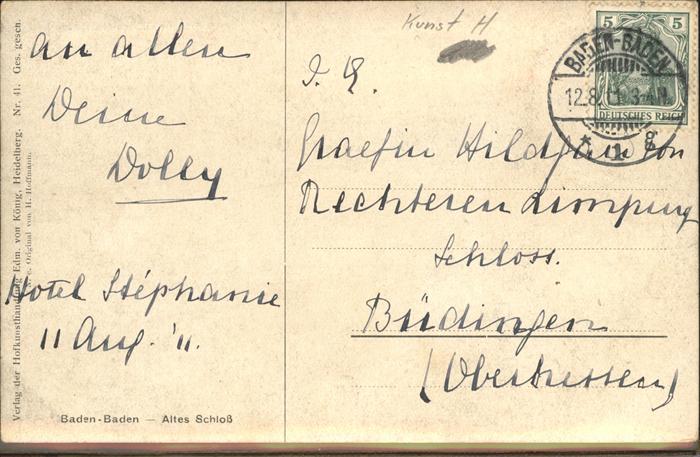 Kunst H
an allen
Deine
Dolly
Hotel Stéphanie
11 Aug. '11.
I. E.
Graefin Hildegard von
Rechteren Limpurg
Schloss.
Büdingen
(Oberhessen)
5 5
DEUTSCHES REICH
BADEN-BADEN
12.8.11. 3-4 N.
Baden-Baden — Altes Schloß
Verlag der Hofkunsthandlung Edm. von König, Heidelberg. Nr. 41. Ges. gesch.
Original von H. Hoffmann.